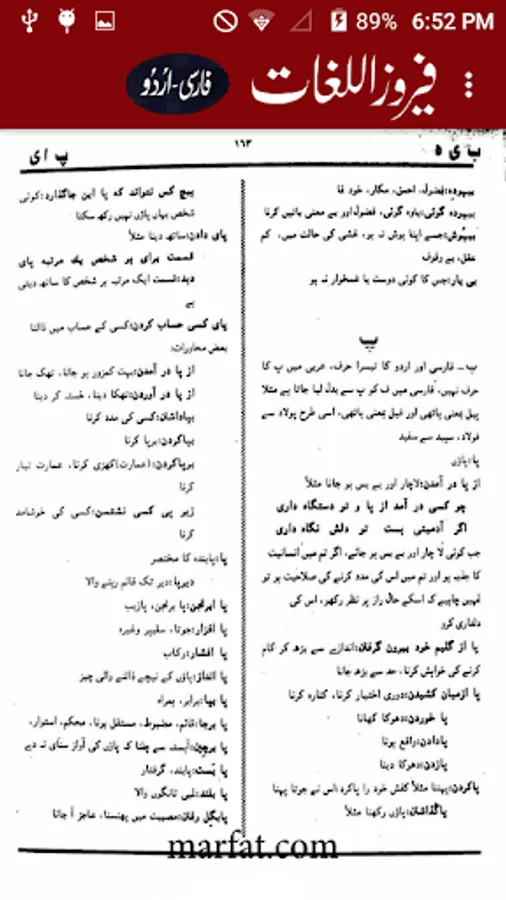 89% 6:52 PM
فیروز اللغات
فارسی-اُردُو
ب ی ہ
۱۶۳
پ ای
بیہودہ: فضول، احمق، مکار، خود نما
بیہودہ گوئی: یاوہ گوئی، فضول اور بے معنی باتیں کرنا
بیہوش: جسے اپنا ہوش نہ ہو، غشی کی حالت میں، کم
عقل، بے وقوف
بی یار: جس کا کوئی دوست یا غمخوار نہ ہو
پ
پ ــ فارسی اور اردو کا تیسرا حرف، عربی میں پ کا
حرف نہیں، فارسی میں ف کو پ سے بدل لیا جاتا ہے مثلا
پیل بمعنی ہاتھی اور فیل بمعنی ہاتھی، اسی طرح پولاد سے
فولاد، سپید سے سفید
پا: پاؤں
از پا در آمدن: لاچار اور بے بس ہو جانا مثلاً
چو کسی در آمد از پا و تو دستگاہ داری
اگر آدمیتی ہست تو دلش نگاہ داری
جب کوئی لاچار اور بے بس ہو جائے، اگر تم میں انسانیت
کا جذبہ ہو اور تم میں اس کی مدد کرنے کی صلاحیت ہو تو
تمہیں چاہیے کہ اسکے حال زار پر نظر رکھو، اس کی
دلداری کرو
پا از گلیم خود بیرون گرفتن: اندازے سے بڑھ کر کام
کرنے کی خواہش کرنا، حد سے بڑھ جانا
پا ازمیان کشیدن: دوری اختیار کرنا، کنارہ کرنا
پا خوردن: دھوکا کھانا
پادادن: واقع ہونا
پازدن: دھوکا دینا
پاکردن: پہننا مثلاً کفش خود را پاکرد، اس نے جوتا پہنا
پاگذاشتن: پاؤں رکھنا مثلاً
ہیچ کس نتواند کہ پا این جاگذارد: کوئی
شخص یہاں پاؤں نہیں رکھ سکتا
پای دادن: ساتھ دینا مثلاً
قسمت برای ہر شخص یک مرتبہ پای
دہد: قسمت ایک مرتبہ ہر شخص کا ساتھ دیتی
ہے
پای کسی حساب کردن: کسی کے حساب میں ڈالنا
بعض محاورات:
از پا در آمدن: بہت کمزور ہو جانا، تھک جانا
از پا در آوردن: تھکا دینا، خستہ کر دینا
بپاداشتن: کسی کی مدد کرنا
بپاکردن: برپا کرنا
برپاکردن: (عمارت) کھڑی کرنا، عمارت تیار
کرنا
زیر پی کسی نشستن: کسی کی خوشامد
کرنا
پا: پایندہ کا مختصر
دیرپا: دیر تک قائم رہنے والا
پا ابرنجن: پا برنجن، پازیب
پا افزار: جوتا، سلیپر وغیرہ
پا افشار: رکاب
پا انداز: پاؤں کے نیچے ڈالنے والی چیز
پا بپا: برابر، ہمراہ
پا برجا: قائم، مضبوط، مستقل ہونا، محکم، استوار،
پا برچین: آہستہ سے چلنا کہ پاؤں کی آواز سنائی نہ دے
پا بست: پابند، گرفتار
پا بلند: لمبی ٹانگوں والا
پابگل رفتن: مصیبت میں پھنسنا، عاجز آ جانا
marfat.com